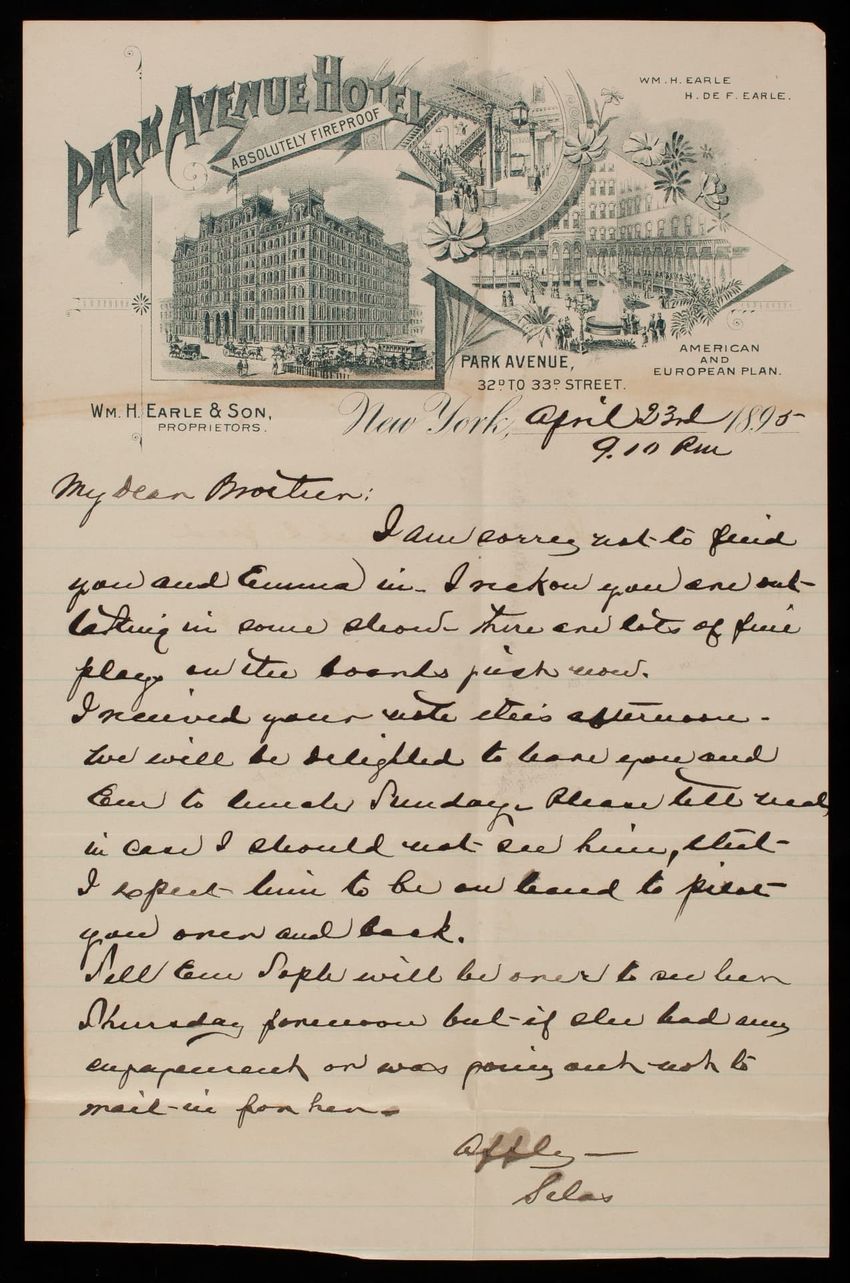 PARK AVENUE HOTEL
ABSOLUTELY FIREPROOF
WM. H. EARLE
H. DE F. EARLE.
PARK AVENUE,
32D TO 33D STREET.
AMERICAN
AND
EUROPEAN PLAN.
WM. H. EARLE & SON,
PROPRIETORS.
New York, April 23rd 1895
9.10 Pm
My Dear Brother:
I am sorry not to find
you and Emma in. I reckon you are out
taking in some show. There are lots of fine
plays on the boards just now.
I received your note this afternoon.
We will be delighted to have you and
Em to lunch Sunday. Please tell
in case I should not see him, that
I expect him to be on hand to pilot
you over and back.
Tell Em Soph will be over to see her
Thursday forenoon but if she had any
engagement or was going out not to
wait in for her.
Affly
Silas